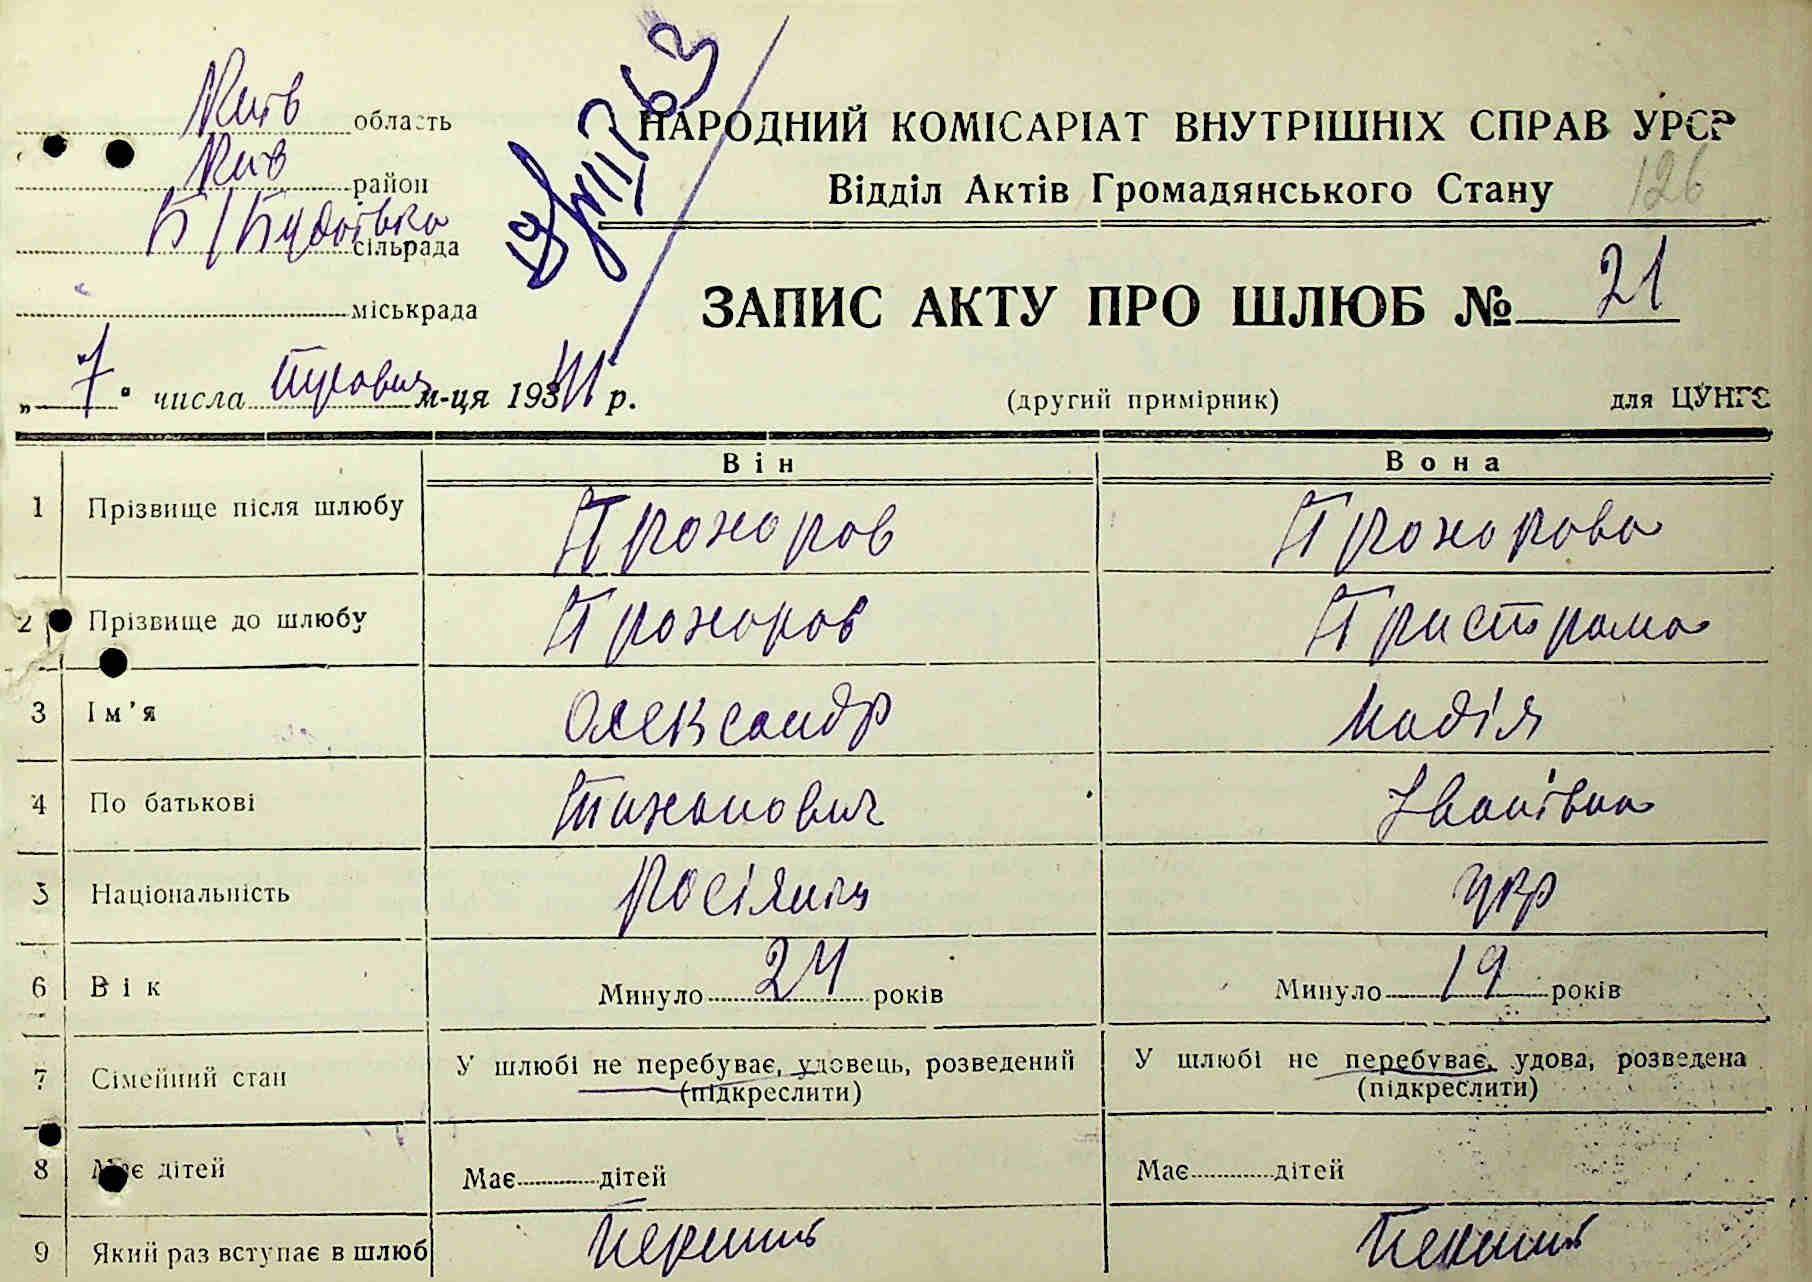 Київ область
Київ район
Б/Будаївка сільрада
міськрада
НАРОДНИЙ КОМІСАРІАТ ВНУТРІШНІХ СПРАВ УРСР
Відділ Актів Громадянського Стану
126
ЗАПИС АКТУ ПРО ШЛЮБ № 21
„7“ числа м-ця 1941 р.
(другий примірник) для ЦУНГО
Він Вона
1 Прізвище після шлюбу Прохоров Прохорова
2 Прізвище до шлюбу Прохоров Пристрома
3 Ім'я Олександр Надія
4 По батькові Тиханович Іванівна
5 Національність Росіянин Укр
6 Вік Минуло 24 років Минуло 19 років
7 Сімейний стан У шлюбі не перебуває, удовець, розведений У шлюбі не перебуває, удова, розведена
(підкреслити) (підкреслити)
8 Має дітей Має дітей Має дітей
9 Який раз вступає в шлюб Перший Перший